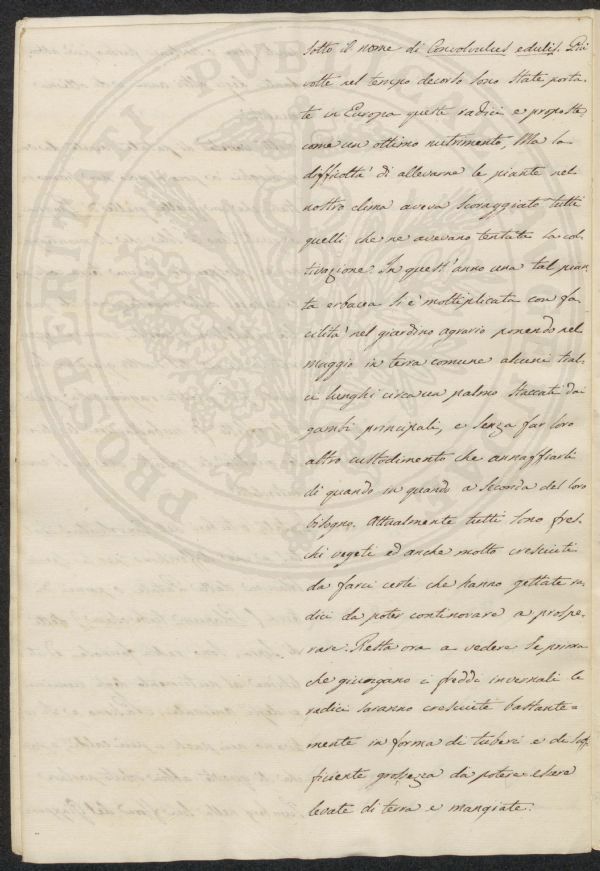 sotto il nome di Convolvulus edulis. Più
volte nel tempo decorso sono state porta-
te in Europa queste radici e proposte
come un ottimo nutrimento, Ma la
difficoltà di allevarne le piante nel
nostro clima aveva scoraggiato tutti
quelli che ne avevano tentata la col-
tivazione. In quest'anno una tal pian-
ta erbacea si è moltiplicata con fa-
cilità nel giardino agrario ponendo nel
maggio in terra comune alcuni tral-
ci lunghi circa un palmo staccati dai
gambi principali, e senza far loro
altro custodimento che annaffiarli
di quando in quando a seconda del loro
bisogno. Attualmente tutti sono fres-
chi vegeti ed anche molto cresciuti
da farci certi che hanno gettate ra-
dici da poter continovare a prospe-
rare. Resta ora a vedere se prima
che giungano i freddi invernali le
radici saranno cresciute bastante=
mente in forma di tuberi e di suf-
ficiente grossezza da potere essere
levate di terra e mangiate.
PROSPERITATI PUBLI